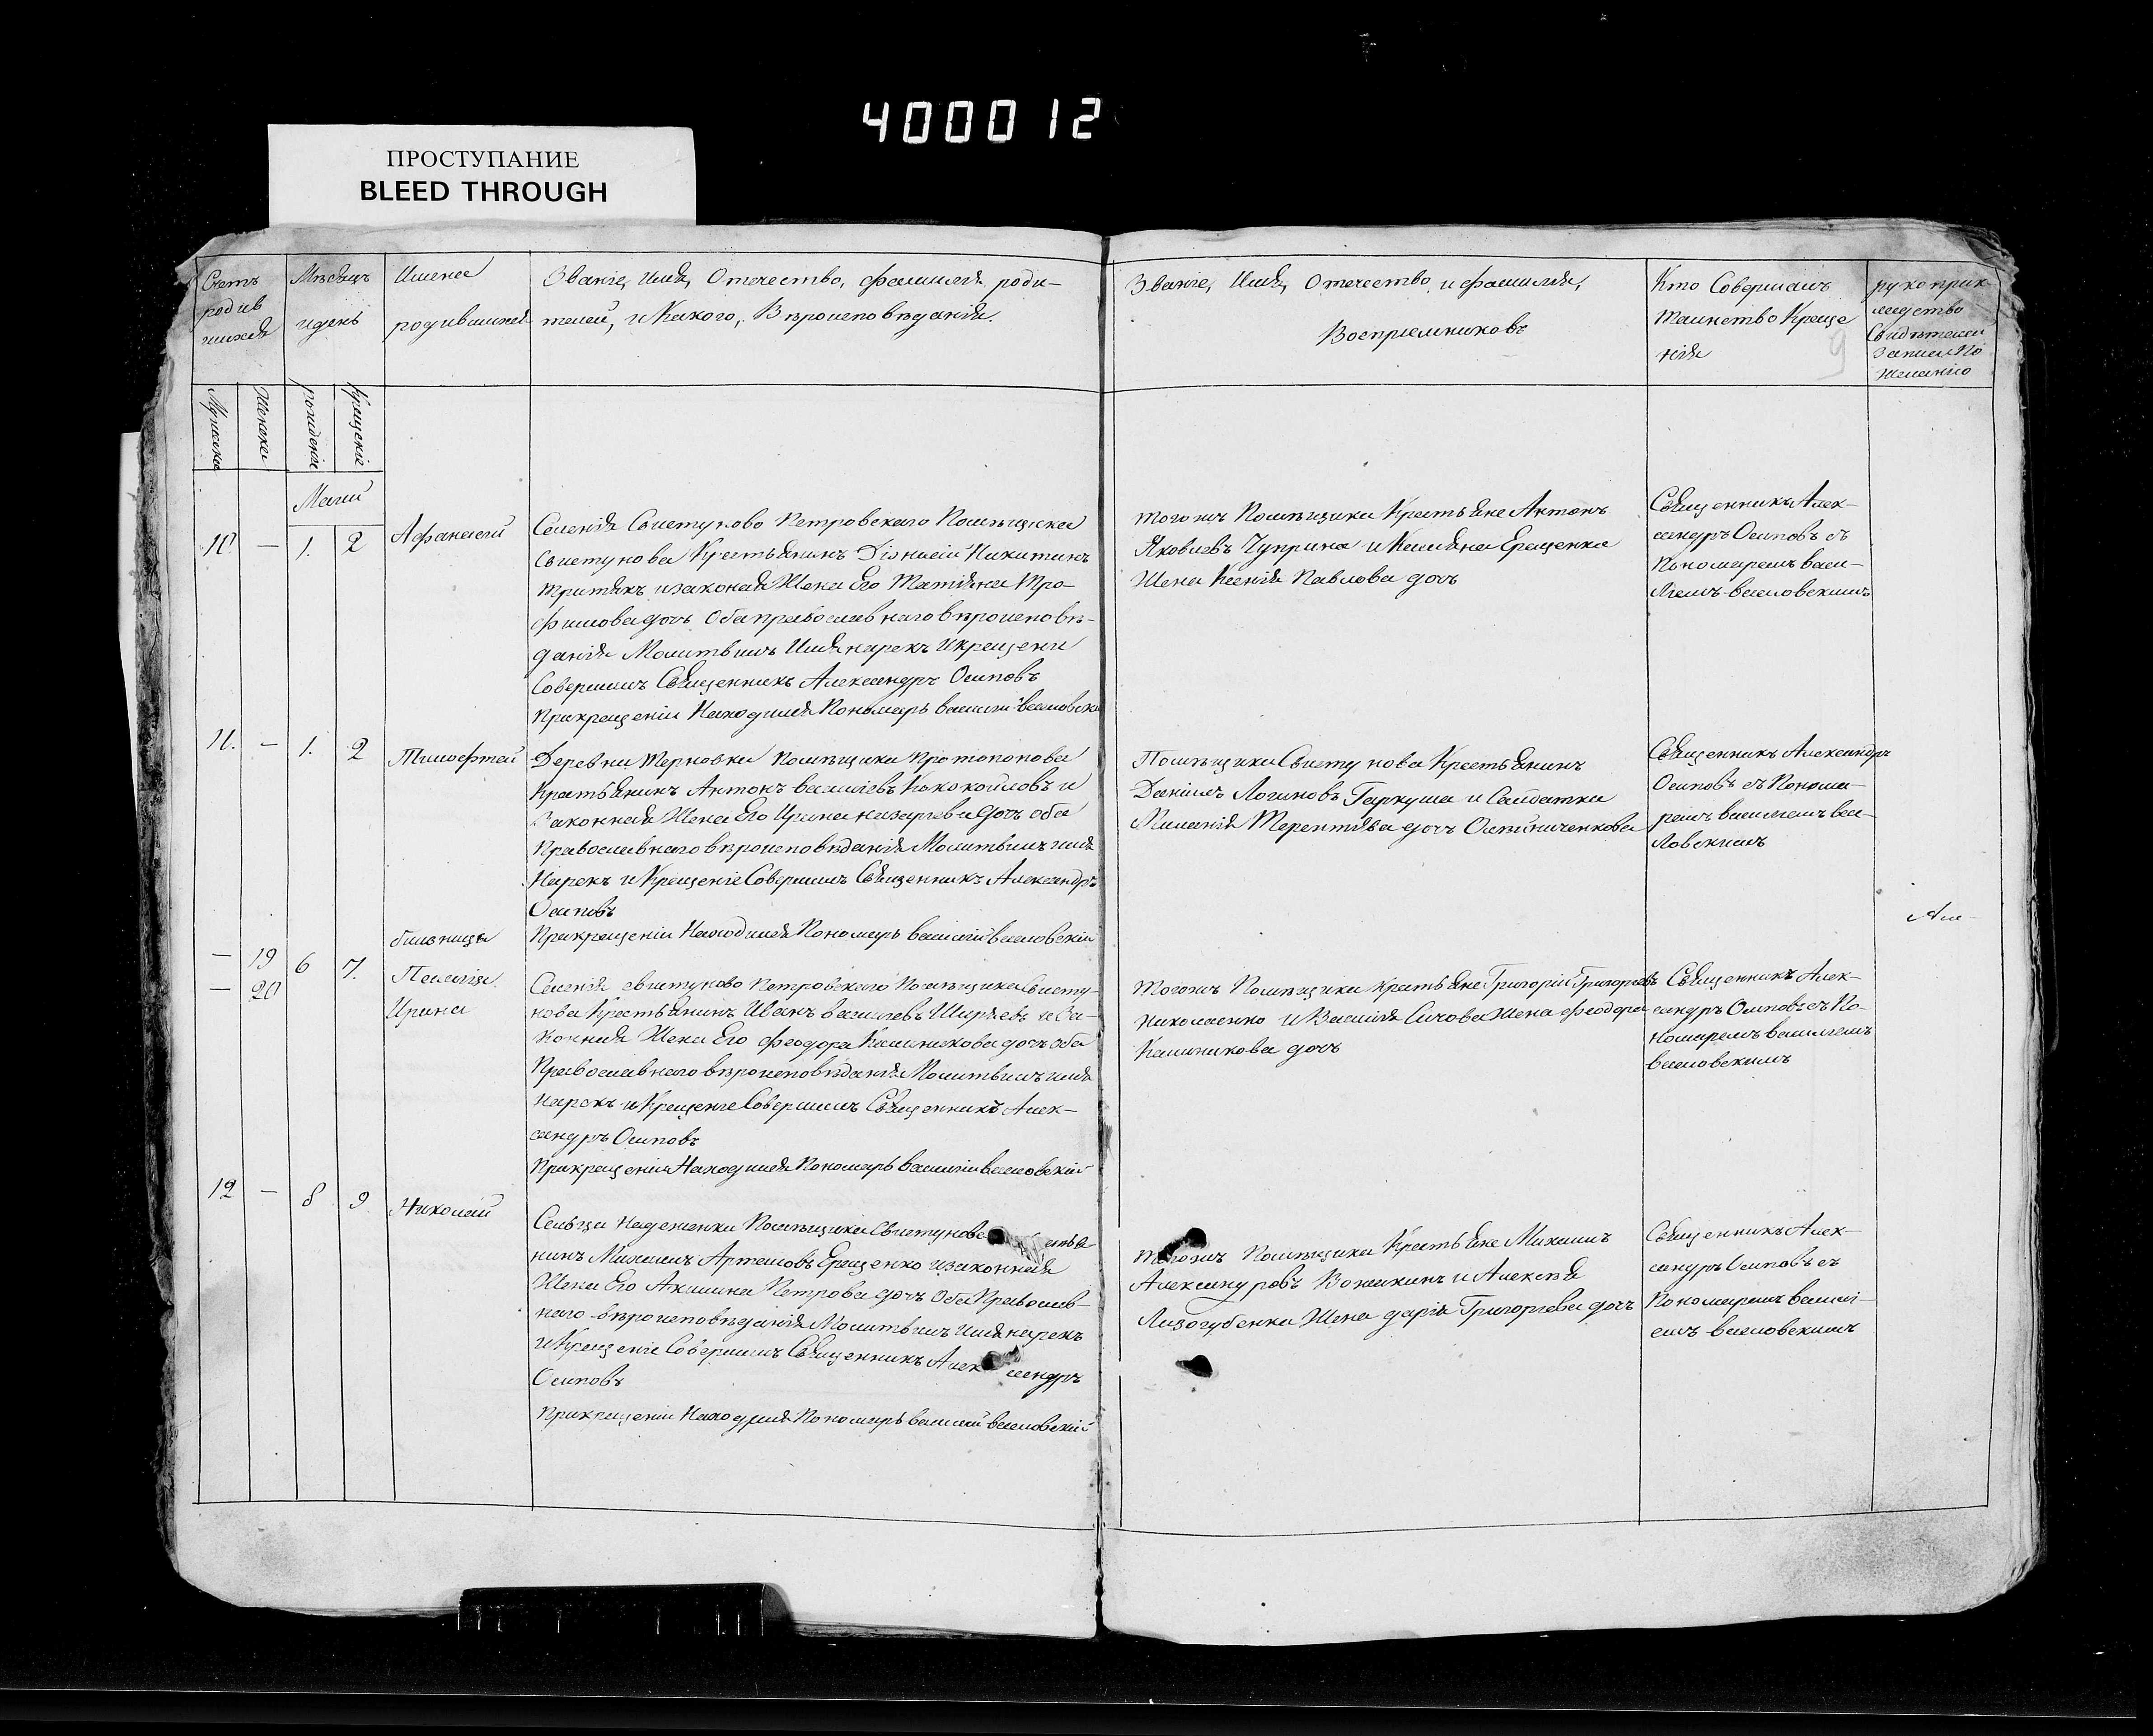 400012
ПРОСТУПАНИЕ
BLEED THROUGH
Счетъ
родив
шихся
Мѣсяцъ
и день
Имена
родившихся
Званіе, Имя, Отечество, фамилія роди-
телей, и Какого, Вѣроисповѣданія.
Званіе, Имя, Отечество, и фамилія,
Воспріемниковъ
Кто Совершалъ
таинство Креще
нія
рукоприк
ладство
Свидѣтелей
записи По
Желанію
9
Мужска
Женска
рожденіе
Крещеніе
Маіи
10
—
1.
2
Афанасій
Селенія Свистуново Петровскаго Помѣщика
Свистунова Крестьянинъ Никитинъ
Третякъ изаконая Жена Его Татіяна Тро-
фимова дочь Оба православнаго вѣроисповѣ-
данія Молитвилъ Имя нарекъ и крещени
Совершилъ Священникъ Александръ Осиповъ
Прикрещеніи Находился Пономарь василій васловски
того жъ Помѣщика Крестьяне Антонъ
Яковлевъ Чуприна и Касіяна Ерещенка
Жена Ксенія Павлова дочь
Священникъ Алек-
сандръ Осиповъ съ
Пономаремъ васи-
лиемъ васловскимъ
11.
—
1.
2
Тимофтей
Деревни Терновки помѣщика Протопопова
Крестьянинъ Антонъ василіевъ Кококойловъ и
Законная Жена Его Ирина назарьева дочь оба
Православнаго вѣроисповѣданія Молитвилъ имя
Нарекъ и Крещеніе Совершилъ Священникъ Александръ
Осиповъ
Прикрещеніи Находился Пономарь василій васловскій
Помѣщика Свистунова Крестьянинъ
Даніилъ Логиновъ Гаркуша и Салдатка
Миланія Терентіева дочь Олейниченкова
Священникъ Александръ
Осиповъ съ Понома-
ремъ василиемъ вас-
ловскимъ
Але-
близница
—
19
6
7.
Пелагія
—
20
Ирина
Селенія свистуново Петровскаго Помѣщика Свисту-
нова Крестьянинъ Иванъ василіевъ Ширяевъ и За-
конная Жена Его феодора Калиникова дочь оба
Православнаго вѣроисповѣданія Молитвилъ имя
нарекъ и Крещеніе Совершилъ Священникъ Алек-
сандръ Осиповъ
Прикрещеніи Находился Пономарь василій васловскій
Тогожъ Помѣщика крестьяне Григорій Григорьевъ
Николаенко и Василія Сичова Жена феодора
Калиникова дочь
Священникъ Алек-
сандръ Осиповъ съ По-
номаремъ василиемъ
васловскимъ
12
—
8
9
Николай
Сельца Надеженки Помѣщика Свистунова естья-
нинъ Михаилъ Артемовъ Ерещенко изаконная
Жена Его Акилина Петрова дочь Оба Православ-
наго вѣроисповѣданія Молитвилъ имя нарекъ
и Крещеніе Совершилъ Священникъ Александръ
Осиповъ
Прикрещеніи Находился Пономарь василій васловскій
тогожъ Помѣщика Крестьяне Михаилъ
Александровъ Вожакинъ и Алексѣя
Лизогубенка Жена дарія Григорьева дочь
Священникъ Алек-
сандръ Осиповъ съ
Пономаремъ васили-
емъ васловскимъ